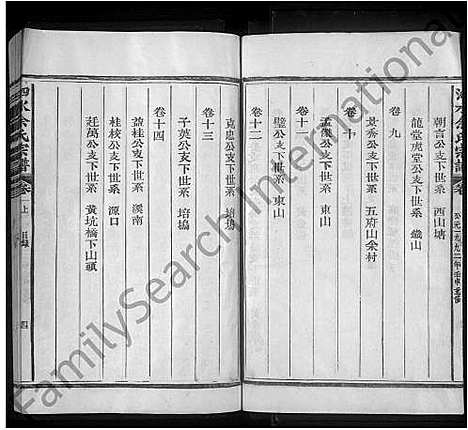 朝言公支下世系 西山塘
龍堂虎堂公支下世系 鐵山
卷九
景秀公支下世系 五府山余村
卷十
孟傑公支下世系 東山
卷十一
璧公支下世系 東山
卷十二
克忠公支下世系 培塢
卷十三
子英公支下世系 培塢
卷十四
益桂公支下世系 溪南
桂枝公支下世系 源口
赶萬公支下世系 黄坑橋下山頭
水余氏宗譜 卷一上
四
FamilySearch International